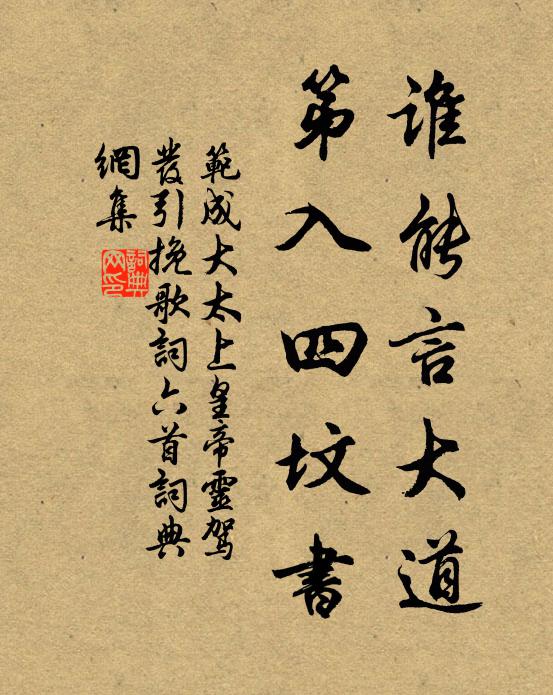 谁能言大道
第入四坟書
範成大太上皇帝靈駕
發引挽歌詞六首詞典
網集
詞典
网印